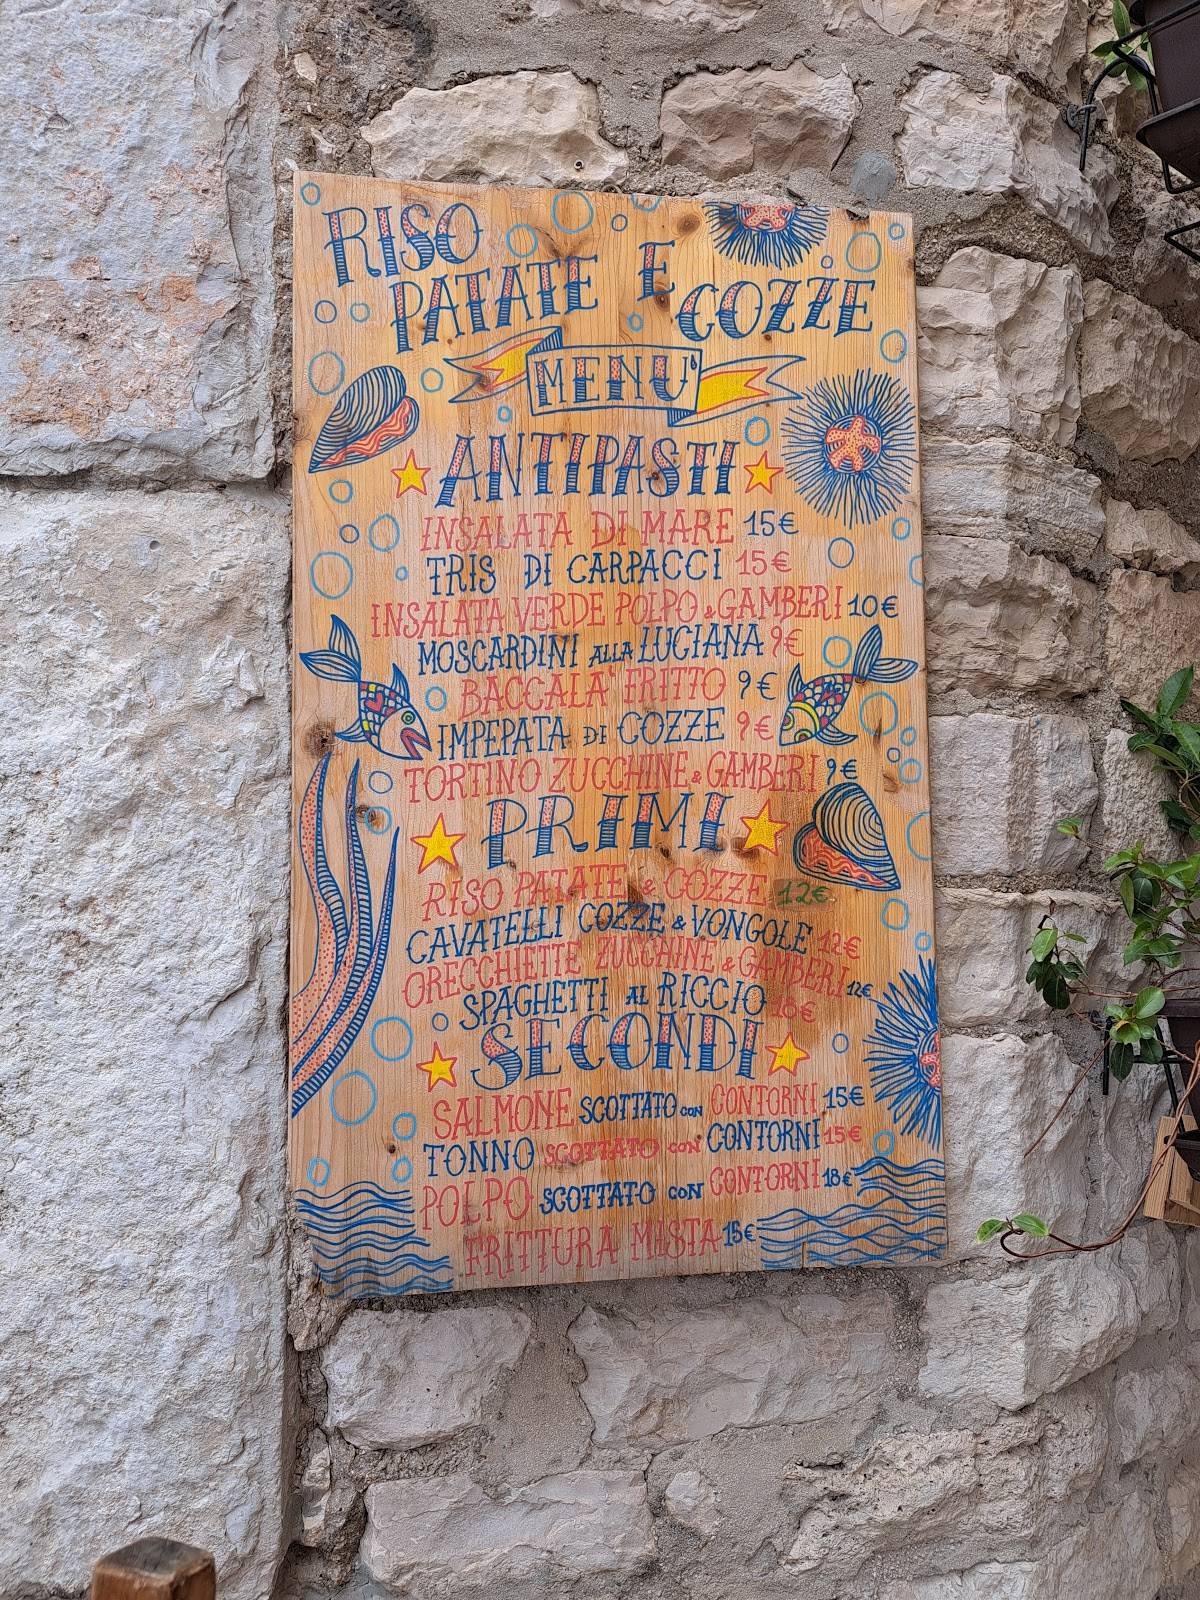 RISO
PATATE E COZZE
MENU'
ANTIPASTI
INSALATA DI MARE 15€
TRIS DI CARPACCI 15€
INSALATA VERDE POLPO & GAMBERI 10€
MOSCARDINI ALLA LUCIANA 9€
BACCALA' FRITTO 9€
IMPEPATA DI COZZE 9€
TORTINO ZUCCHINE & GAMBERI 9€
PRIMI
RISO PATATE & COZZE 12€
CAVATELLI COZZE & VONGOLE 12€
ORECCHIETTE ZUCCHINE & GAMBERI 12€
SPAGHETTI AL RICCIO 18€
SECONDI
SALMONE SCOTTATO CON CONTORNI 15€
TONNO SCOTTATO CON CONTORNI 15€
POLPO SCOTTATO CON CONTORNI 18€
FRITTURA MISTA 15€